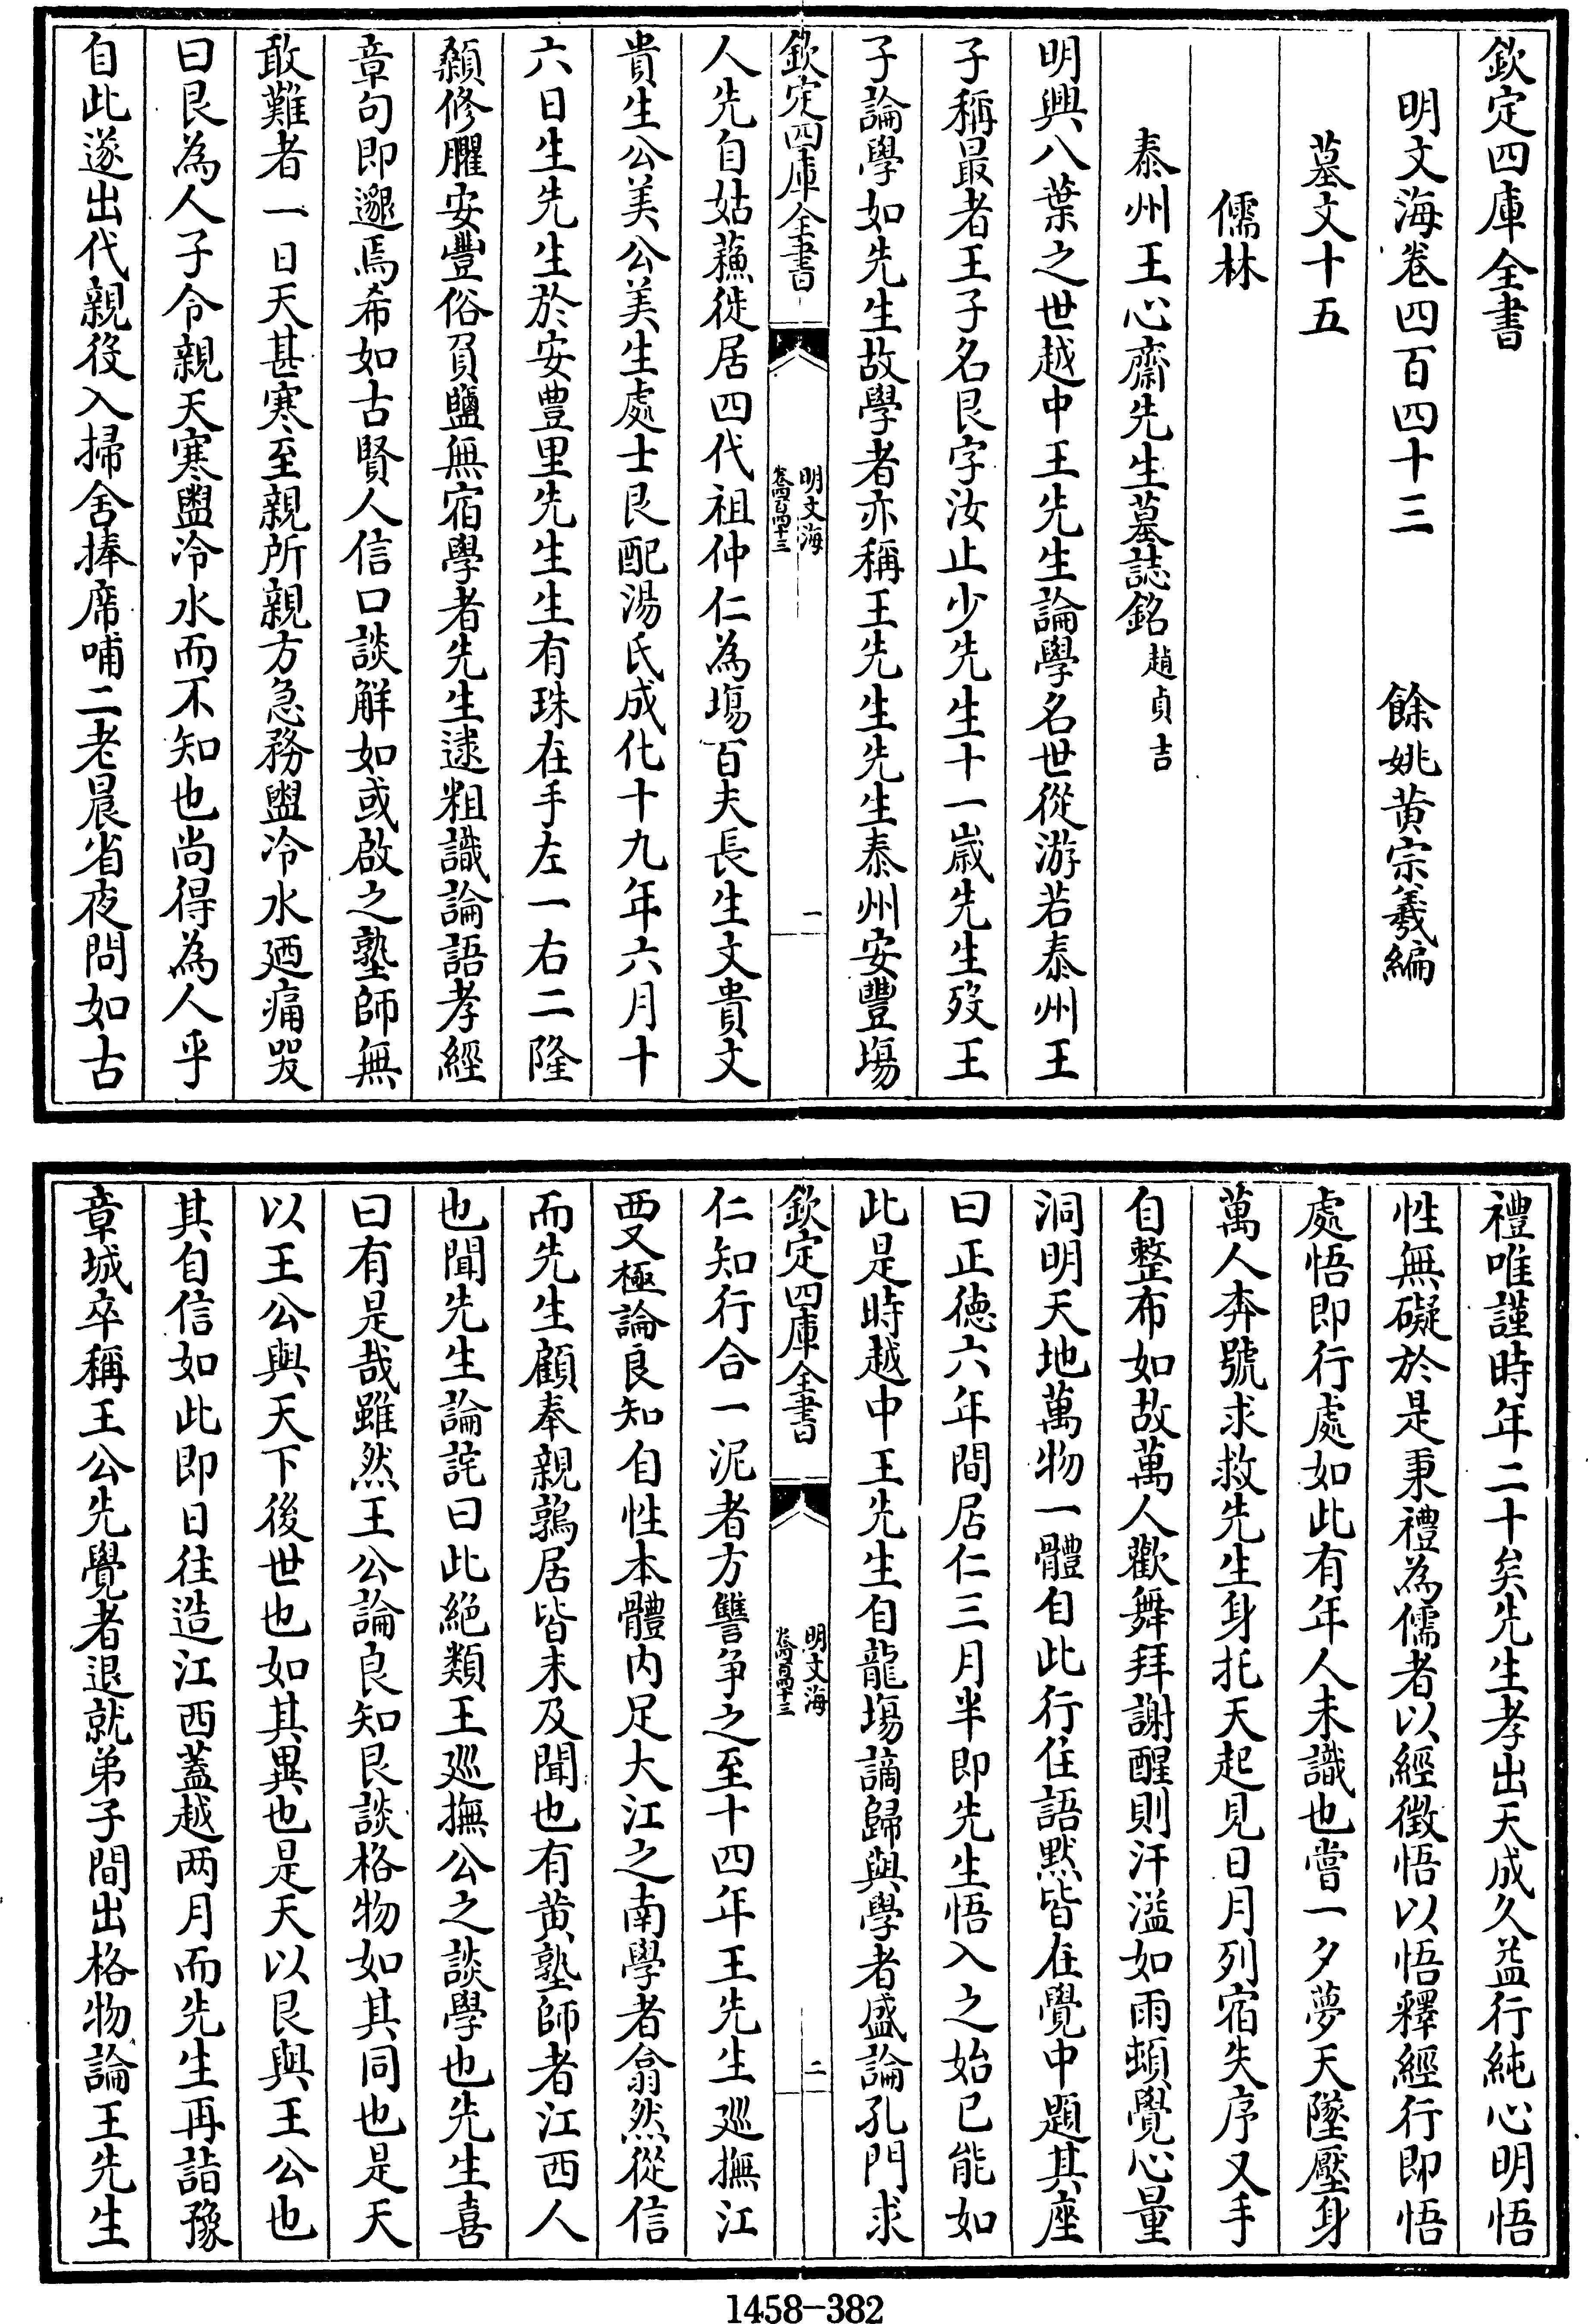 欽定四庫全書
明文海卷四百四十三
餘姚黄宗羲編
墓文十五
儒林
泰州王心齋先生墓誌銘趙貞吉
明興八葉之世越中王先生論學名世從游若泰州王
子稱最者王子名艮字汝止少先生十一歲先生歿王
子論學如先生故學者亦稱王先生先生泰州安豐塲
欽定四庫全書
明文海
卷四百四十三
一
人先自姑蘓徙居四代祖仲仁為塲百夫長生文貴文
貴生公美公美生處士艮配湯氏成化十九年六月十
六日生先生於安豊里先生生有珠在手左一右二隆
顙修臞安豐俗負鹽無宿學者先生逮粗識論語孝經
章句即邈焉希如古賢人信口談解如或啟之塾師無
敢難者一日天甚寒至親所親方急務盥冷水廼痛哭
曰艮為人子令親天寒盥冷水而不知也尚得為人乎
自此遂出代親役入掃舍捧席哺二老晨省夜問如古
禮唯謹時年二十矣先生孝出天成久益行純心明悟
性無礙於是秉禮為儒者以經徴悟以悟釋經行即悟
處悟即行處如此有年人未識也嘗一夕夢天墜壓身
萬人奔號求救先生身托天起見日月列宿失序又手
自整布如故萬人歡舞拜謝醒則汗溢如雨頓覺心量
洞明天地萬物一體自此行住語默皆在覺中題其座
曰正徳六年間居仁三月半即先生悟入之始已能如
此是時越中王先生自龍塲謫歸與學者盛論孔門求
欽定四庫全書
明文海
卷四百四十三
二
仁知行合一泥者方讐争之至十四年王先生巡撫江
西又極論良知自性本體内足大江之南學者翕然從信
而先生顧奉親鶉居皆未及聞也有黄塾師者江西人
也聞先生論詫曰此絕類王巡撫公之談學也先生喜
曰有是哉雖然王公論良知艮談格物如其同也是天
以王公與天下後世也如其異也是天以艮與王公也
其自信如此即日往造江西蓋越两月而先生再詣豫
章城卒稱王公先覺者退就弟子間出格物論王先生
1458-382